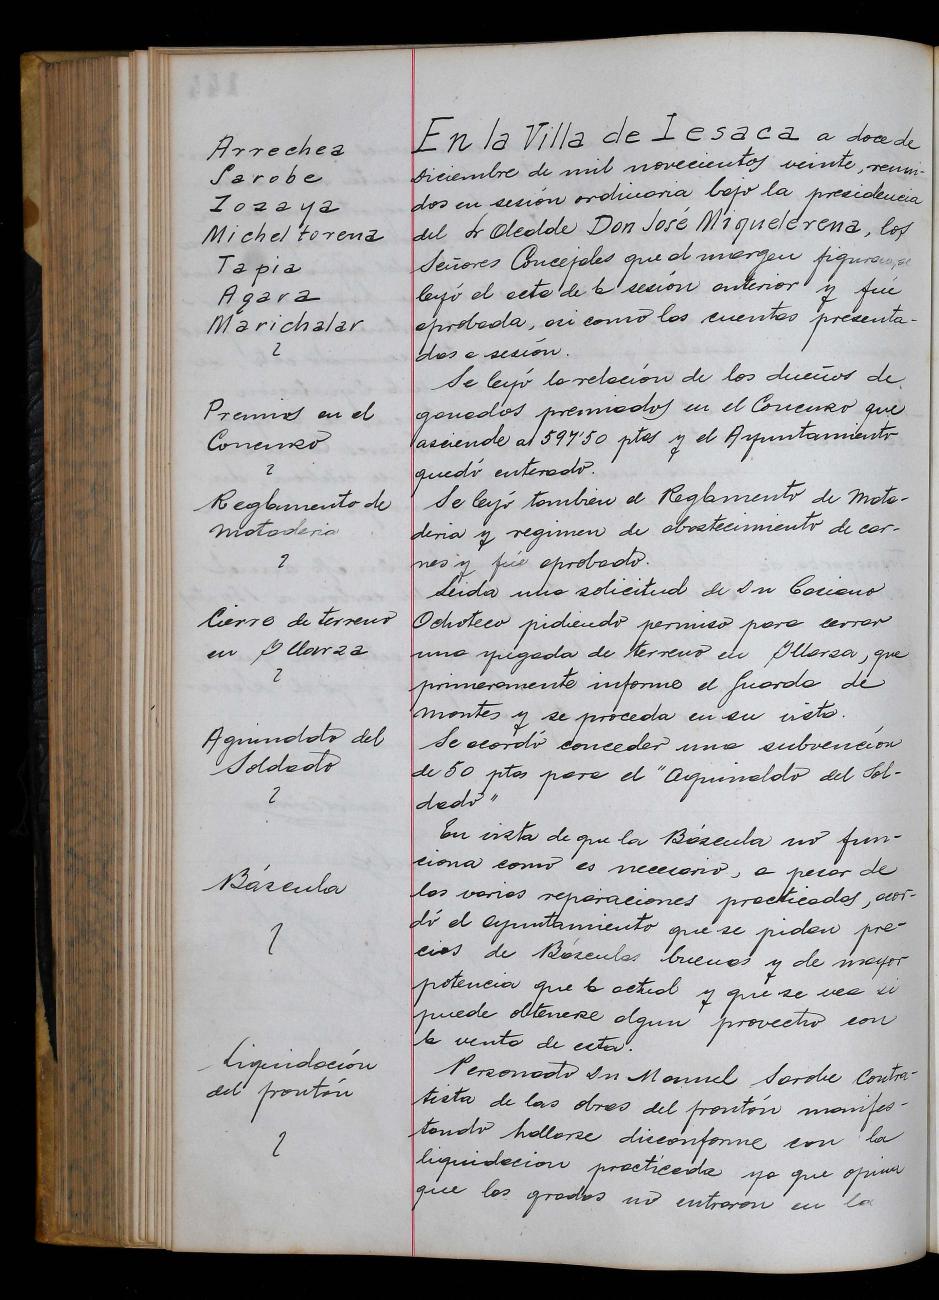 Arrechea
Sarobe
Iozaya
Micheltorena
Tapia
Agara
Marichalar
Premios en el
Concurso
Reglamento de
Mataderia
Cierre de terreno
en Yllarza
Aguinaldo del
Soldado
Báscula
Liquidación
del frontón
En la Villa de Iesaca a doce de
Diciembre de mil novecientos veinte, reuni-
dos en sesión ordinaria bajo la presidencia
del Sr Alcalde Don José Miquelerena, los
Señores Concejales que al margen figuran, se
leyó el acta de la sesión anterior y fué
aprobada, asi como las cuentas presenta-
das a sesión.
Se leyó la relación de los dueños de
ganados premiados en el Concurso que
asciende a 597'50 ptas y el Ayuntamiento
quedó enterado.
Se leyó tambien el Reglamento de Mata-
deria y regimen de abastecimiento de car-
nes y fué aprobado.
Leida una solicitud de Dn Casiano
Ochoteco pidiendo permiso para cerrar
una yugada de terreno en Yllarza, que
primeramente informe el Guarda de
Montes y se proceda en su vista.
Se acordó conceder una subvención
de 50 ptas para el "Aguinaldo del Sol-
dado"
En vista de que la Báscula no fun-
ciona como es necesario, a pesar de
las varias reparaciones practicadas, acor-
dó el ayuntamiento que se pidan pre-
cios de Básculas buenas y de mayor
potencia que la actual y que se vea si
puede obtenerse algun provecho con
la venta de esta.
Personado Dn Manuel Sarobe Contra-
tista de las obras del frontón manifes-
tando hallarse disconforme con la
liquidacion practicada ya que opina
que las gradas no entraron en la